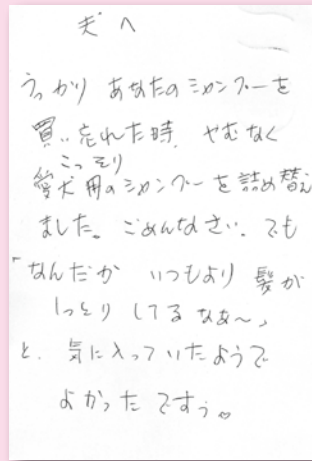 夫へ
うっかり あなたのシャンプーを
買い忘れた時、やむなく
こっそり
愛犬用のシャンプーを詰め替え
ました。ごめんなさい。でも
「なんだか いつもより 髪が
しっとりしてるなぁ〜」
と、気に入っていたようで
よかったですぅ。